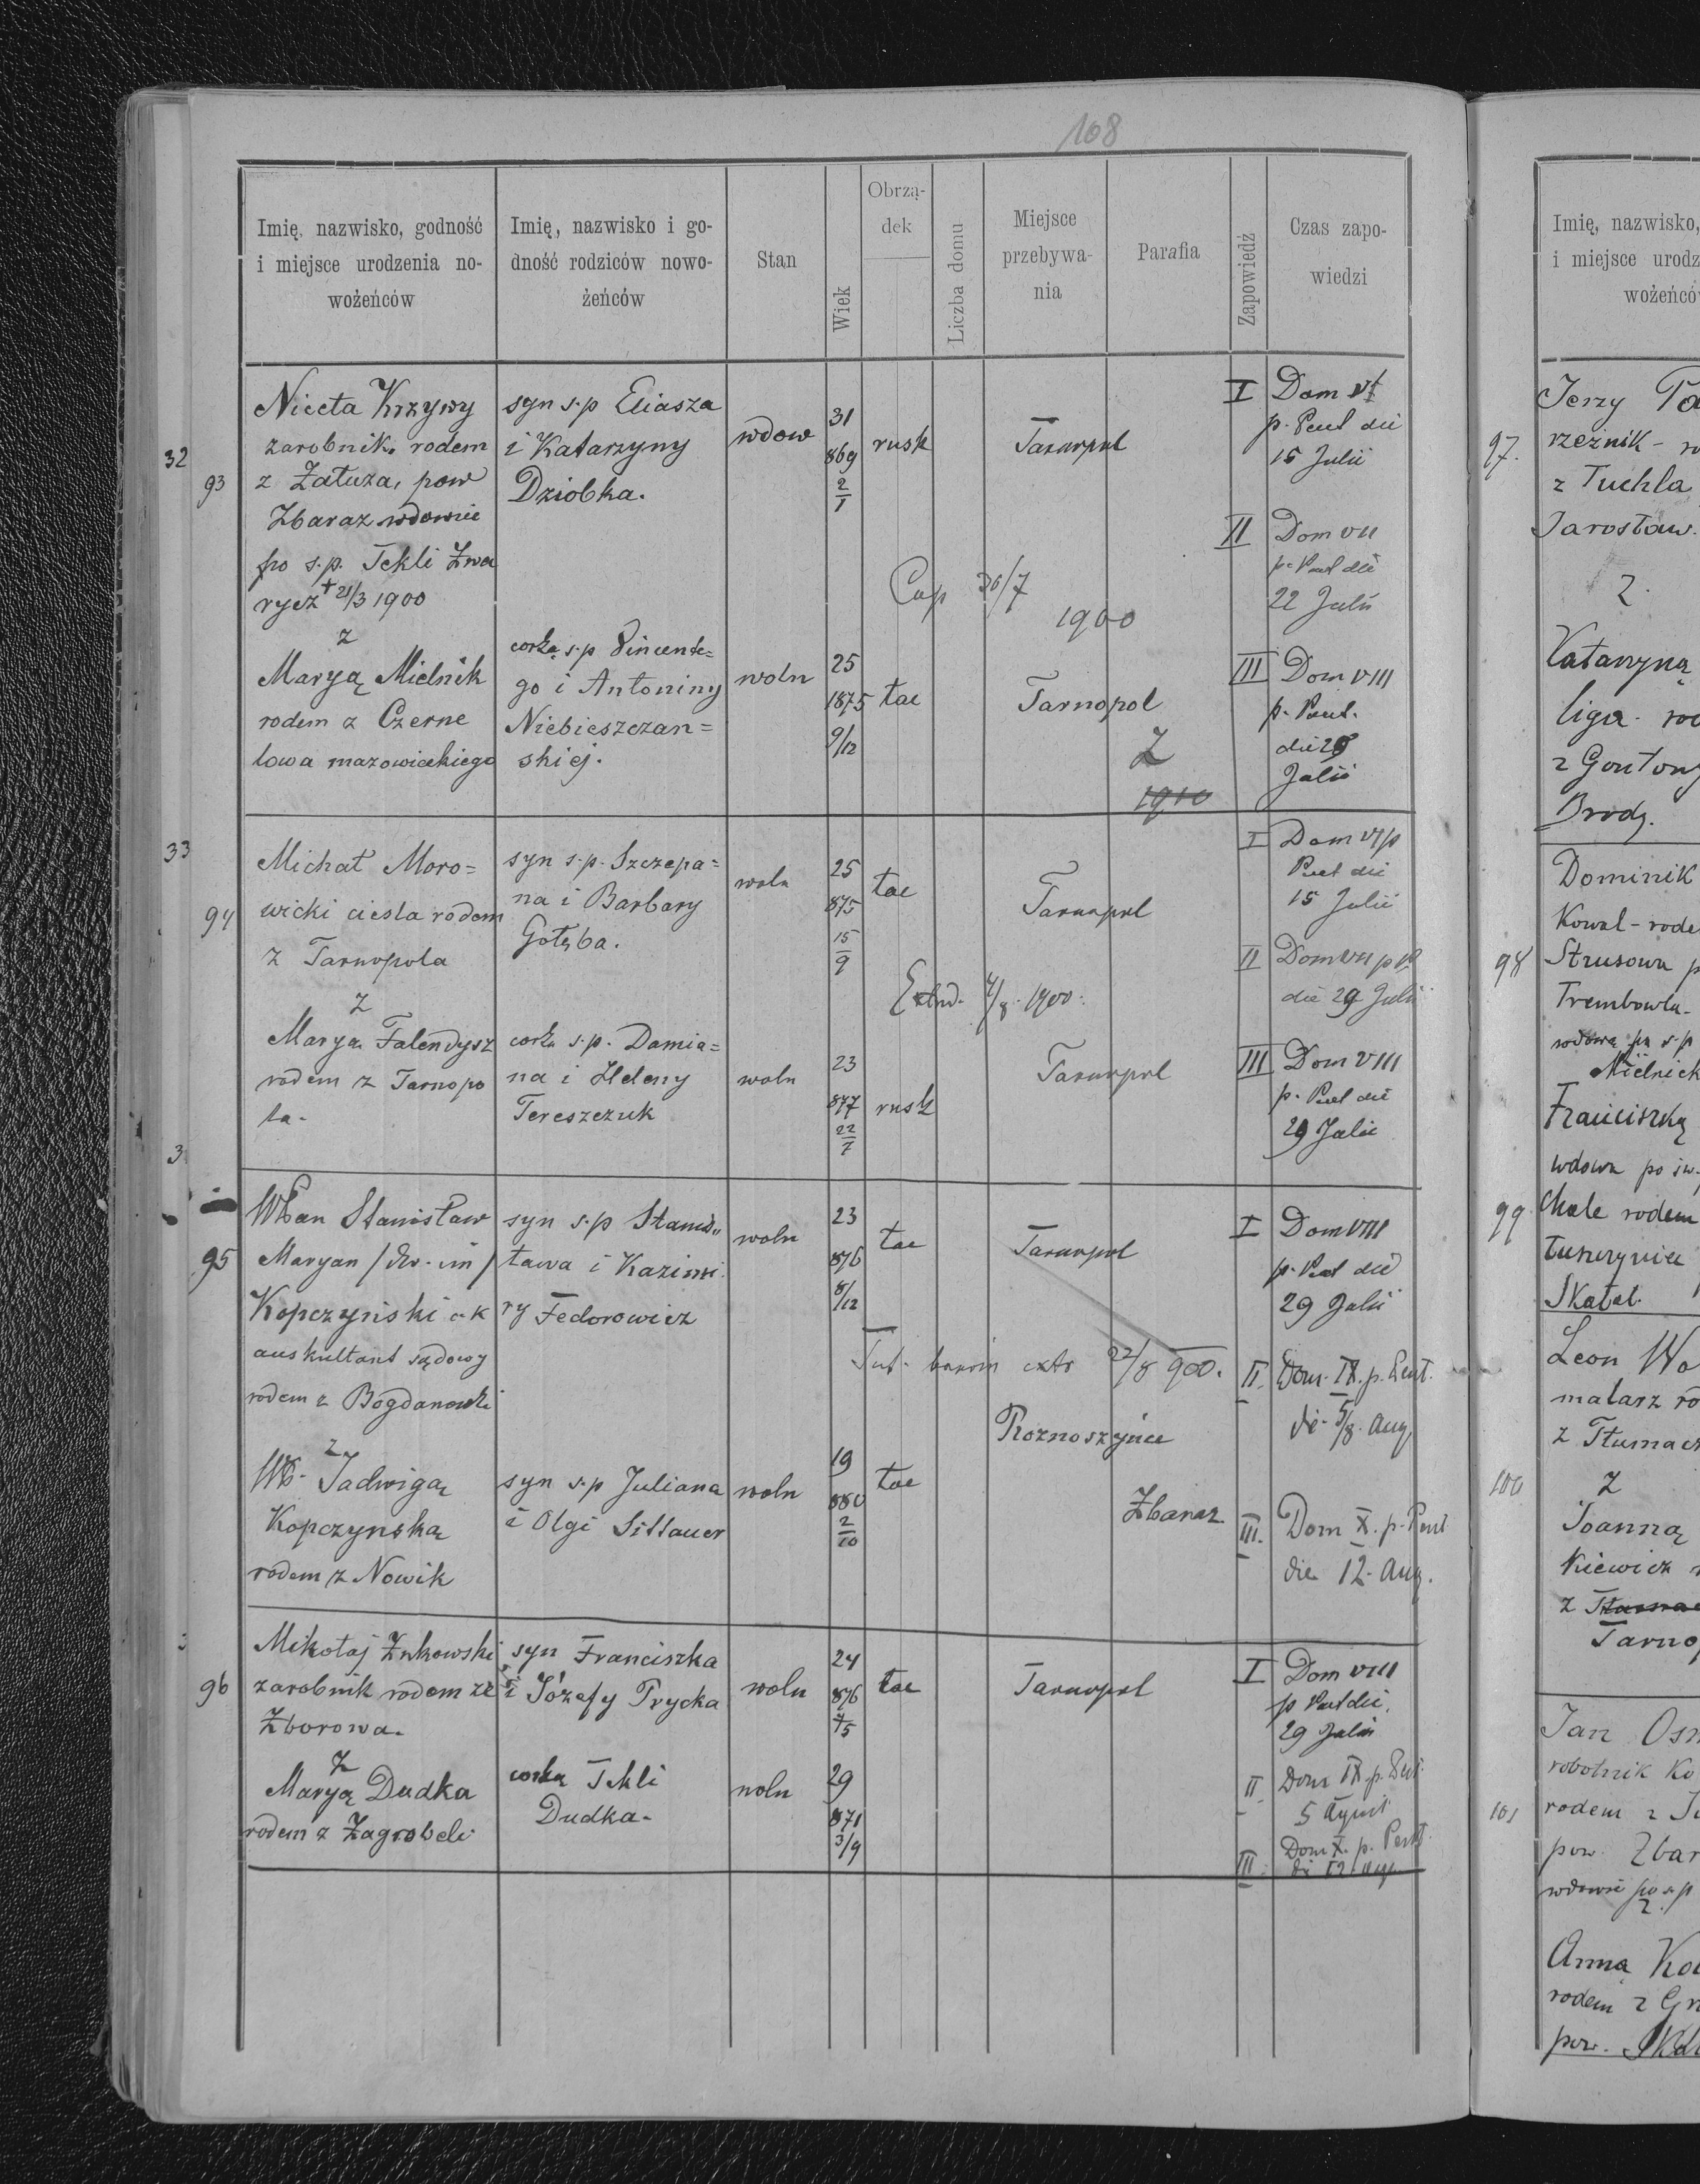 108
Imię, nazwisko, godność
i miejsce urodzenia no-
wożeńców
Imię, nazwisko i go-
dność rodziców nowo-
żeńców
Stan
Wiek
Obrzą-
dek
Liczba domu
Miejsce
przebywa-
nia
Parafia
Zapowiedź
Czas zapo-
wiedzi
32
93
Niceta Krzywy
zarobnik. rodem
z Załuża, pow
Zbaraz wdowiec
po s.p. Tekli Zwa
rycz + 21/3 1900
z
Maryą Mielnik
rodem z Czerne
lowa mazowieckiego
syn s.p Eliasza
i Katarzyny
Dziobka.
corką s.p Vincente=
go i Antoniny
Niebieszczan=
skiej.
wdow
31
869
2/1
rusk
Tarnopol
Cop 30/7
1900
woln
25
1875
9/12
łac
Tarnopol
Z
1910
I Dom VI
p. Pent die
15 Julii
II Dom VII
p. Pent die
22 Julii
III Dom VIII
p. Pent.
die 29
Julii
33
94
Michał Moro=
wicki ciesla rodem
z Tarnopola
z
Marya Falendysz
rodem z Tarnopo
la.
syn s.p. Szczepa=
na i Barbary
Gołęba.
corka s.p. Damia=
na i Heleny
Tereszczuk
woln
25
875
15/9
łac
Tarnopol
Extrad. 4/8. 1900.
woln
23
877
22/7
rusk
Tarnopol
I Dom VI p
Pent die
15 Julii
II Dom VII p P
die 29 Julii
III Dom VIII
p. Pent die
29 Julii
3
95
WPan Stanisław
Maryan /dw. im/
Kopczyński c.k
auskultant sądowy
rodem z Bogdanowki
z
WP. Jadwigą
Kopczynską
rodem z Nowik
syn s.p Stanis„
ława i Kazimi
ry Fedorowicz
syn s.p Juliana
i Olgi Sittauer
woln
23
876
8/12
łac
Tarnopol
extr 22/8 900.
Roznoszyńce
woln
19
880
2/10
łac
Zbaraz
I Dom VIII
p. Pent die
29 Julii
II. Dom. IX. p. Pent.
die 5/8. Aug
III. Dom X. p. Pent
die 12. Aug.
3
96
Mikołaj Żukowski
zarobnik rodem ze
Zborowa.
Z
Maryą Dudka
rodem z Zagrobeli
syn Franciszka
i Józefy Trycka
corką Tekli
Dudka.
woln
24
876
4/5
łac
Tarnopol
woln
29
871
3/9
I Dom VIII
p Pent die
29 Julii
II Dom IX p. Pent.
5 Augusti
III. Dom X. p. Pent.
die 12 Aug.
Imię, nazwisko,
i miejsce urodz
wożeńcó
97.
Jerzy
rzeznik -
z Tuchla
Jarosław.
z.
Katarzyną
liga. rod
Brody.
98
Dominik
Kowal - rode
Strusowa p
Trembowla.
wdowa po s.p
Mielnick
Franciszką
wdowa po św.
99.
Skałat.
100
Leon Wo
malarz ro
z Tłumacz
Z
Joanną
Kiewicz
z
Tarno
101
Jan
robotnik Ko
rodem z
pow. Zbar
wdowie po s.p
z.
Anną Kow
rodem z Gr
pow. Skał